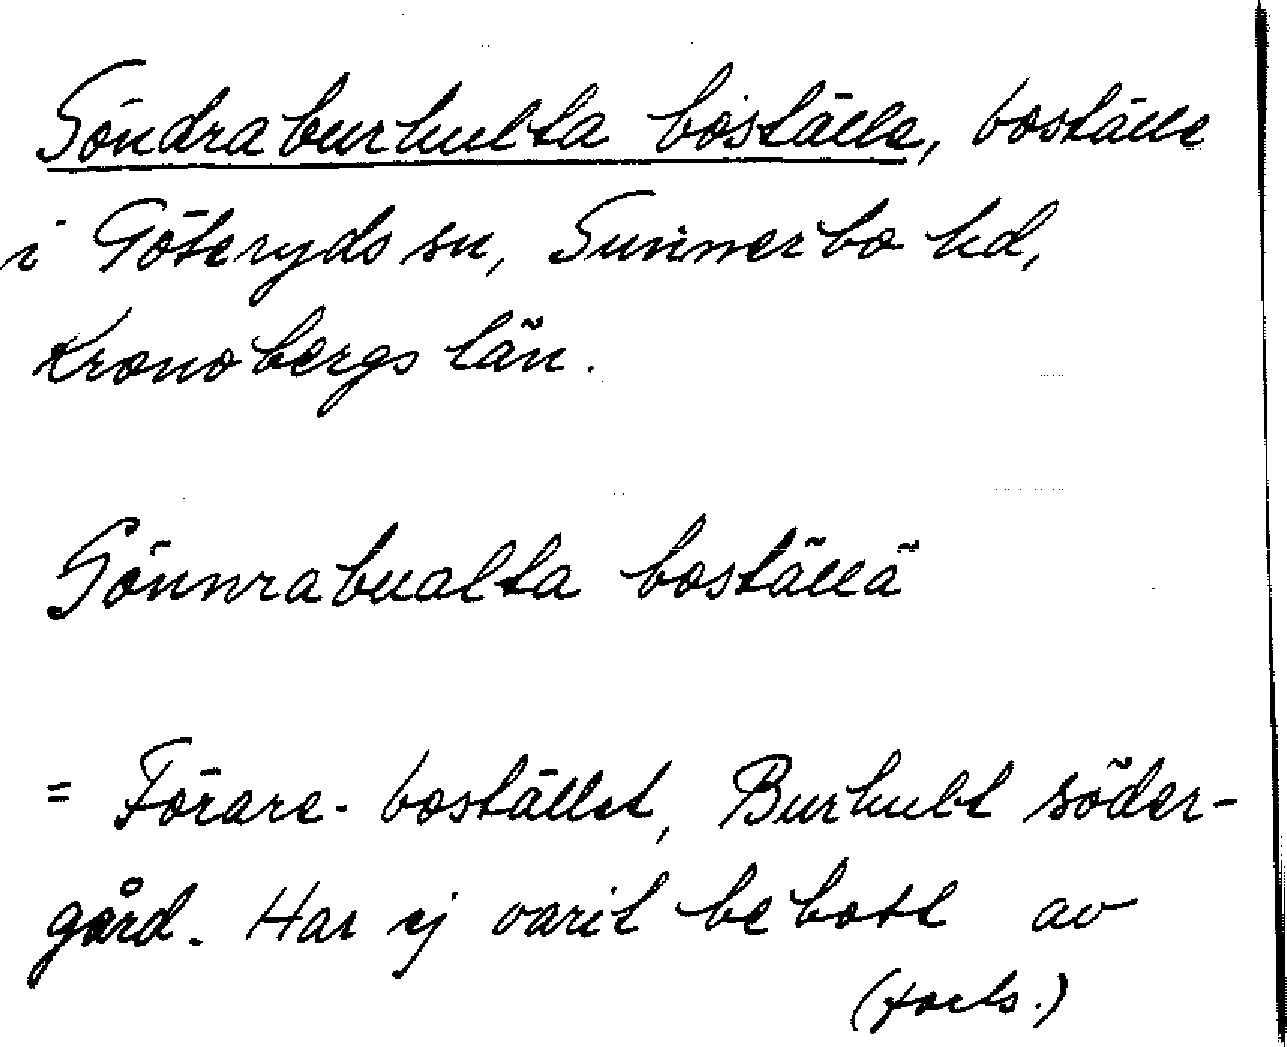 Söndraburhulta boställe, boställe
i Göteryds sn, Sunnerbo hd,
Kronobergs län.
Sönnrabualta boställä
= Förare-bostället, Burhult söder-
gård. Har ej varit bebott av
(forts.)